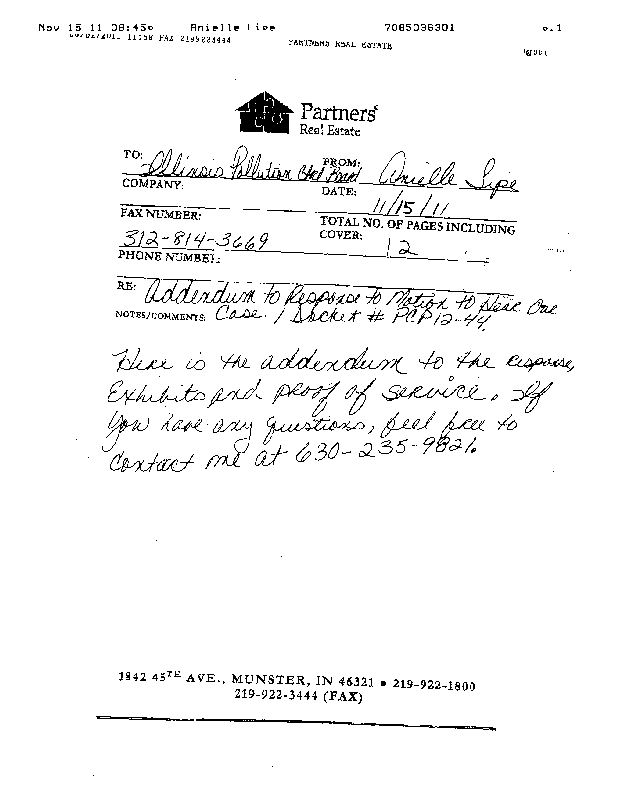 Nov 15 11 08:45p Anielle Lipe 7085036301 p.1
11:58 FAX 2199223444 PARTNERS REAL ESTATE
Partners
Real Estate
TO: Illinois Pollution Ctrl Board FROM: Anielle Lipe
COMPANY: DATE: 11/15/11
FAX NUMBER: 312-814-3669 TOTAL NO. OF PAGES INCLUDING COVER: 12
PHONE NUMBER:
RE: Addendum to Response to Motion to Hear One
NOTES/COMMENTS: Case / Docket # PCP12-44
Here is the addendum to the response,
Exhibits and proof of service. If
you have any questions, feel free to
contact me at 630-235-9821.
1842 45TH AVE., MUNSTER, IN 46321 • 219-922-1800
219-922-3444 (FAX)